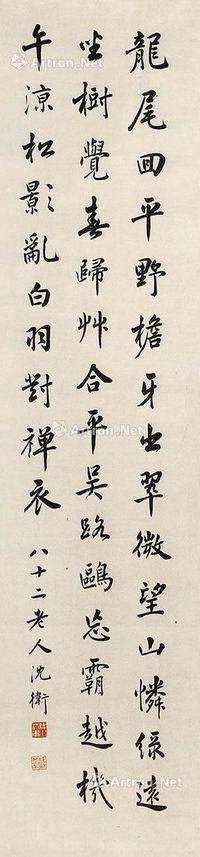 龍尾回平野檐牙出翠微望山憐綠遠
坐樹覺春歸艸合平吳路鷗忘霸越機
午涼松影亂白羽對禪衣
八十二老人沈衛
Artron.Net
Artron.Net
Artron.Net
Artron.Net